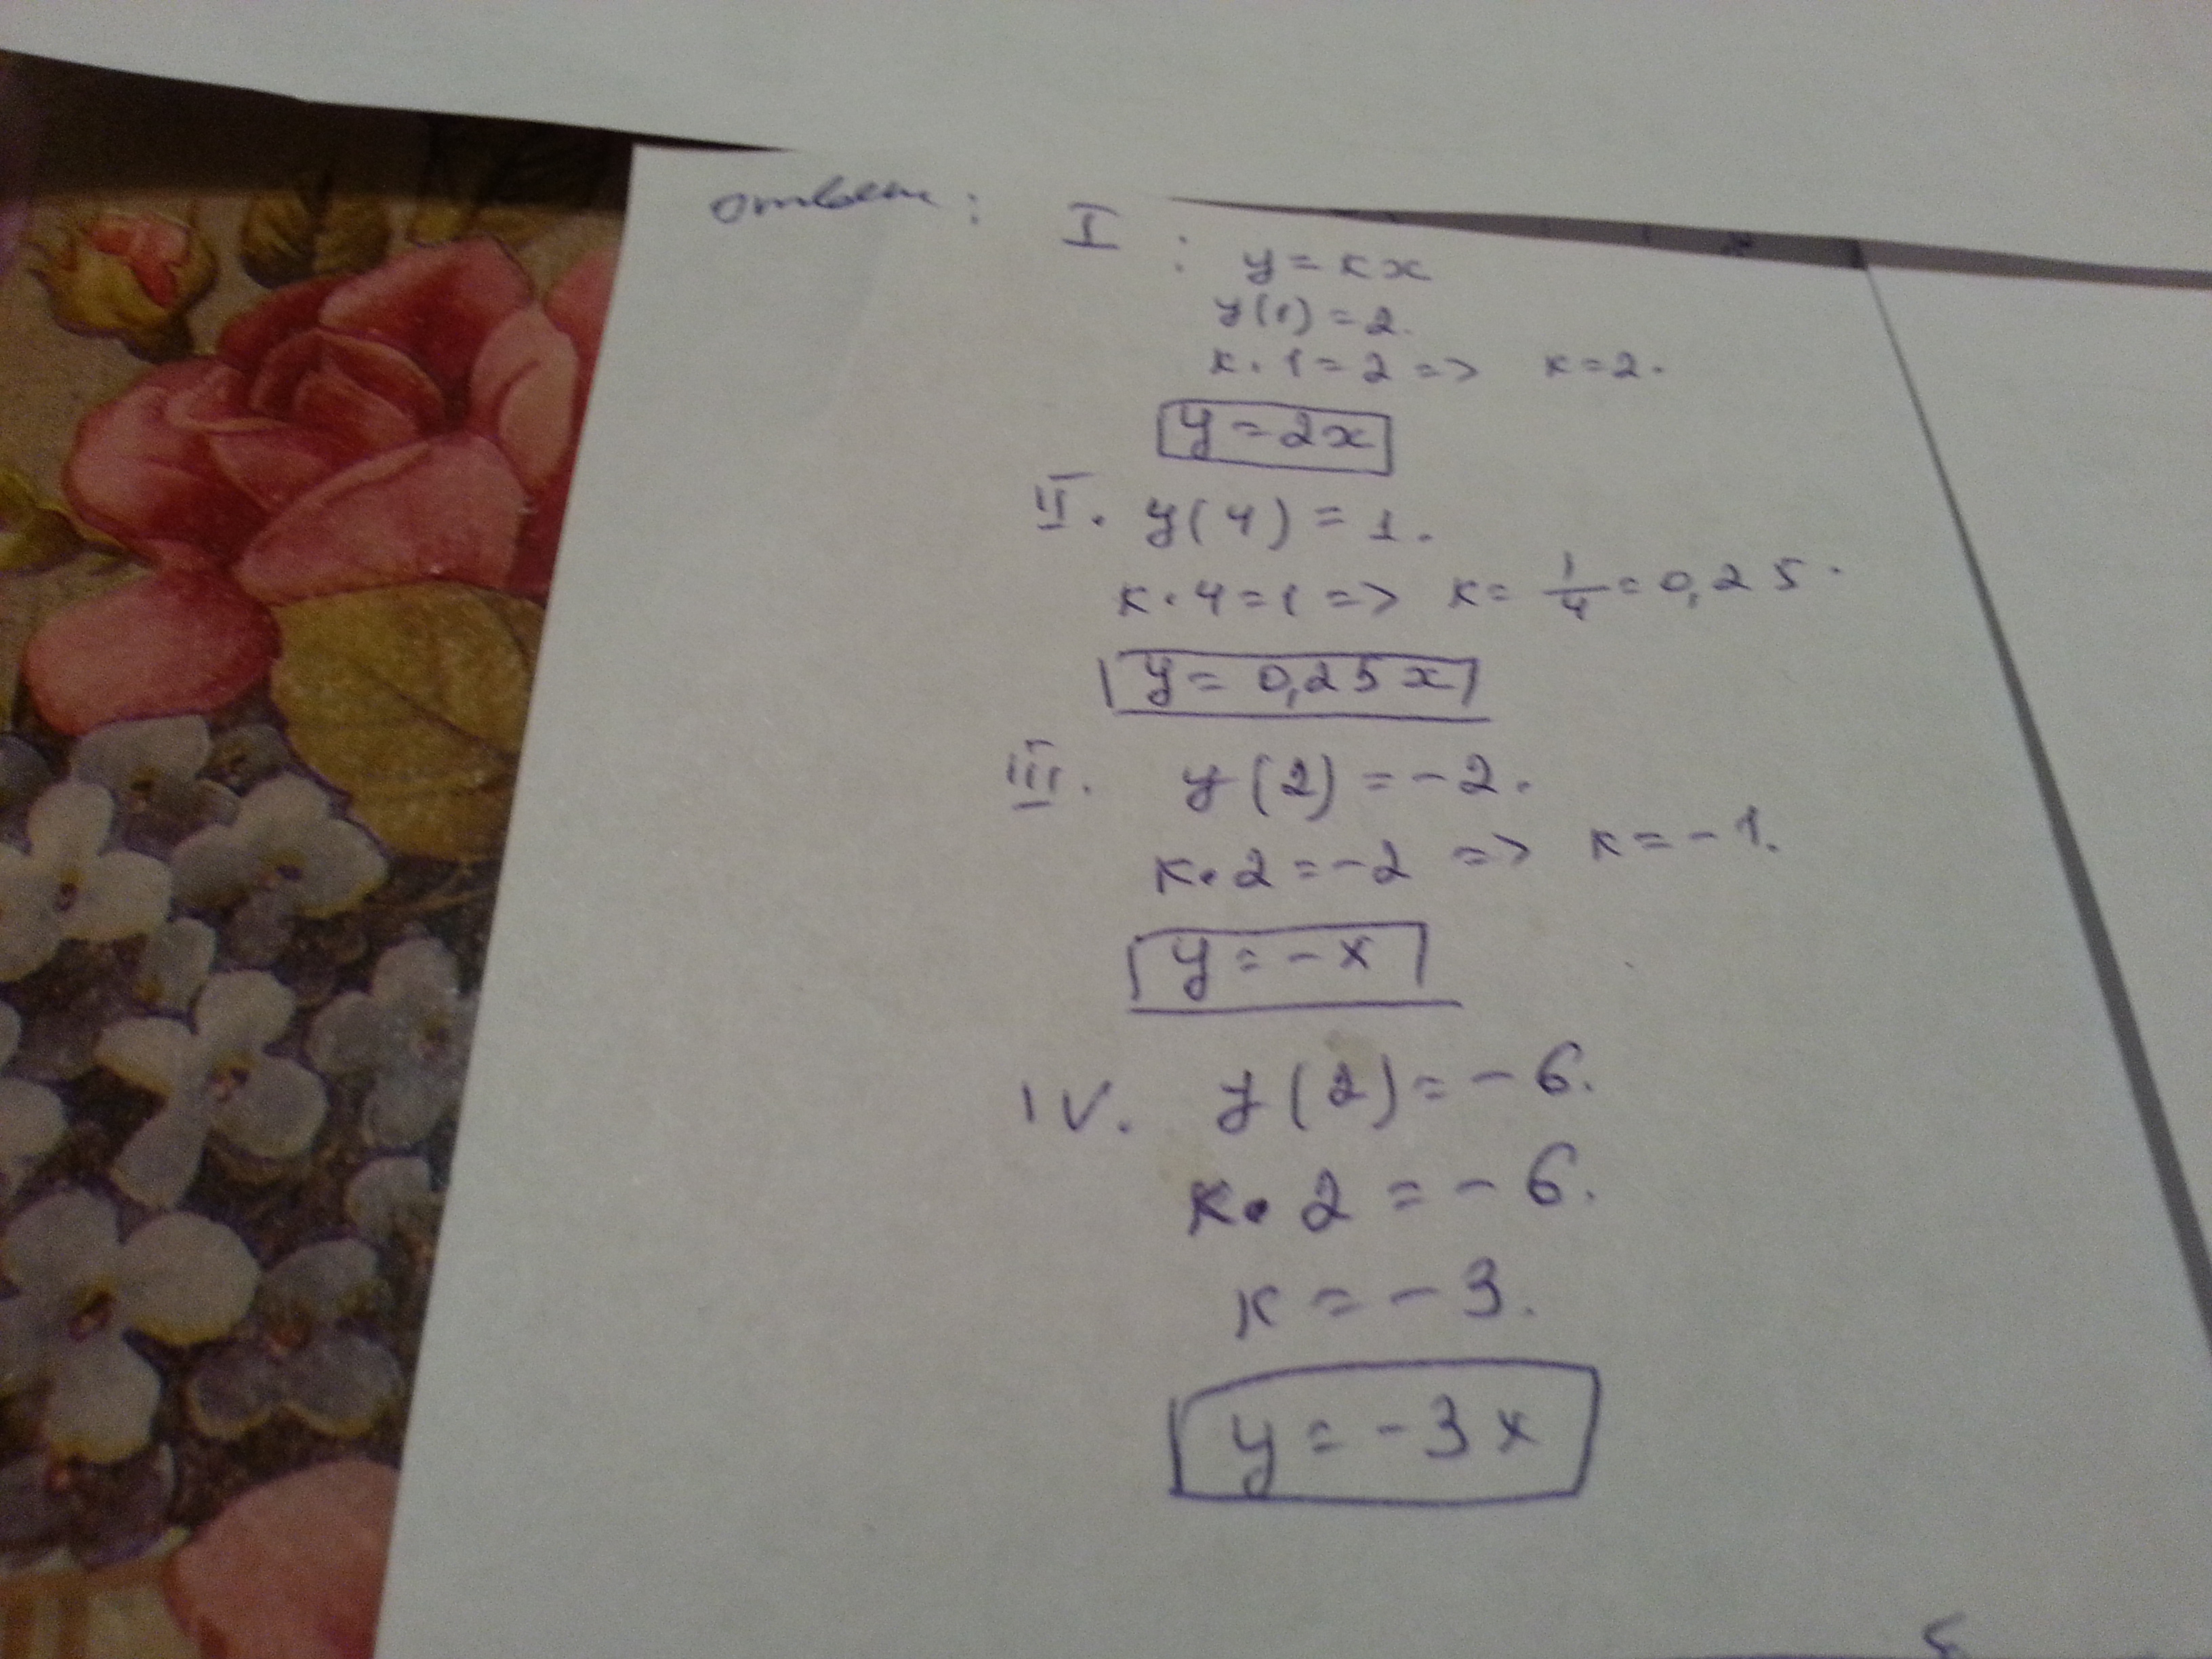 ответ: I: y = kx
y(1) = 2.
k · 1 = 2 => k = 2.
y = 2x
II. y(4) = 1.
k · 4 = 1 => k = 1/4 = 0,25.
y = 0,25x
III. y(2) = -2.
k · 2 = -2 => k = -1.
y = -x
IV. y(2) = -6.
k · 2 = -6.
k = -3.
y = -3x